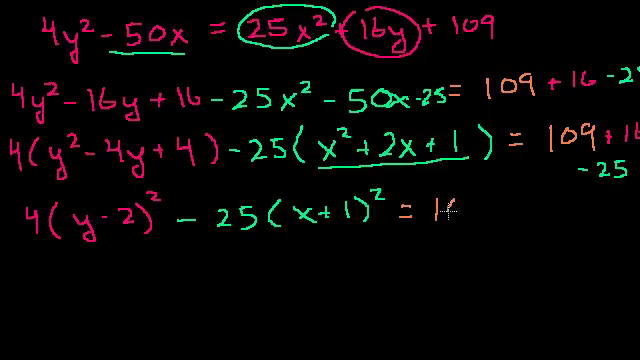 4y² - 50x = 25x² + 16y + 109
4y² - 16y + 16 - 25x² - 50x - 25 = 109 + 16 - 25
4(y² - 4y + 4) - 25(x² + 2x + 1) = 109 + 16
- 25
4(y - 2)² - 25(x + 1)² = 10